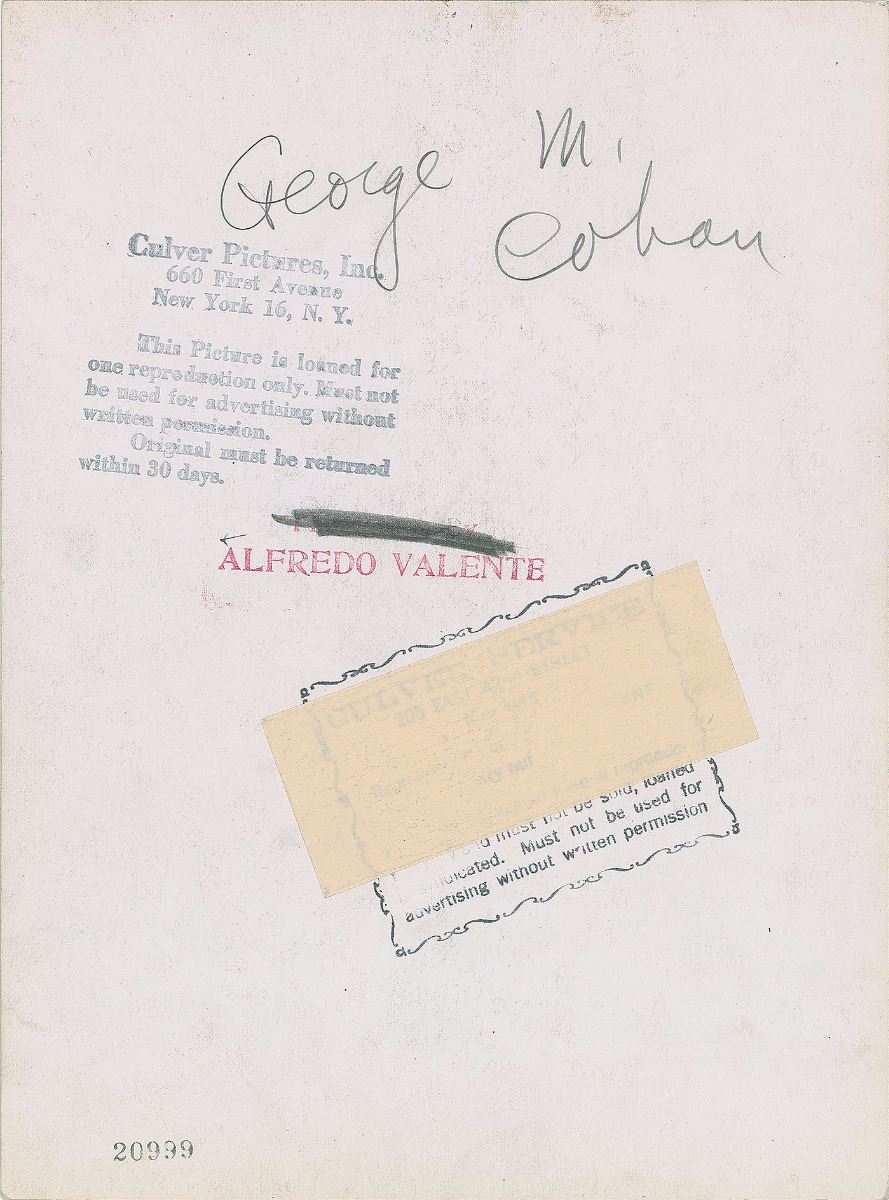 George M.
Cohan
Culver Pictures, Inc.
660 First Avenue
New York 16, N. Y.
This Picture is loaned for
one reproduction only. Must not
be used for advertising without
written permission.
Original must be returned
within 30 days.
ALFREDO VALENTE
CULVER SERVICE
205 EAST STREET
must not be sold, loaned
syndicated. Must not be used for
advertising without written permission
20999